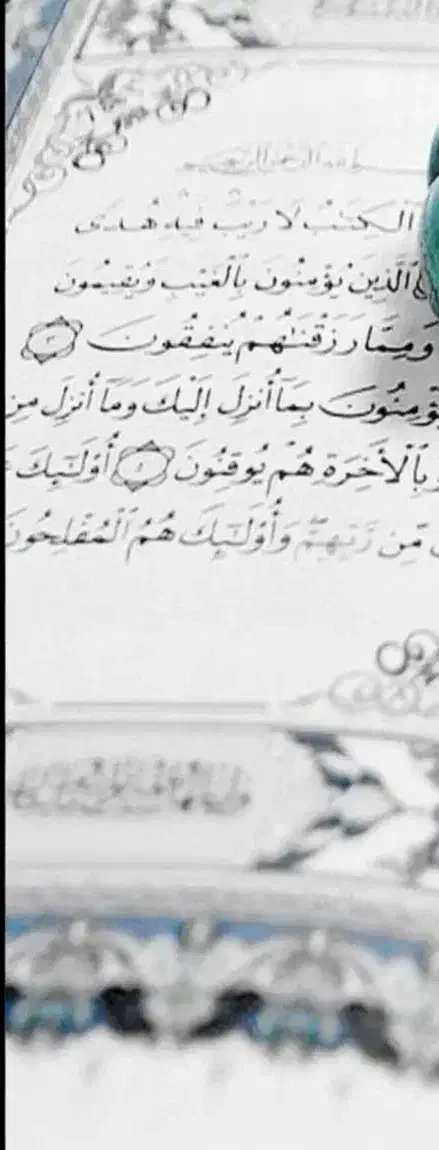 الرحمن الرحيم
الكتب لا ريب فيه هدى
الذين يؤمنون بالغيب ويقيمون
ومما رزقنهم ينفقون ٣
يؤمنون بما أنزل إليك وما أنزل من
وبالآخرة هم يوقنون ٤ أولئك
من ربهم وأولئك هم المفلحون